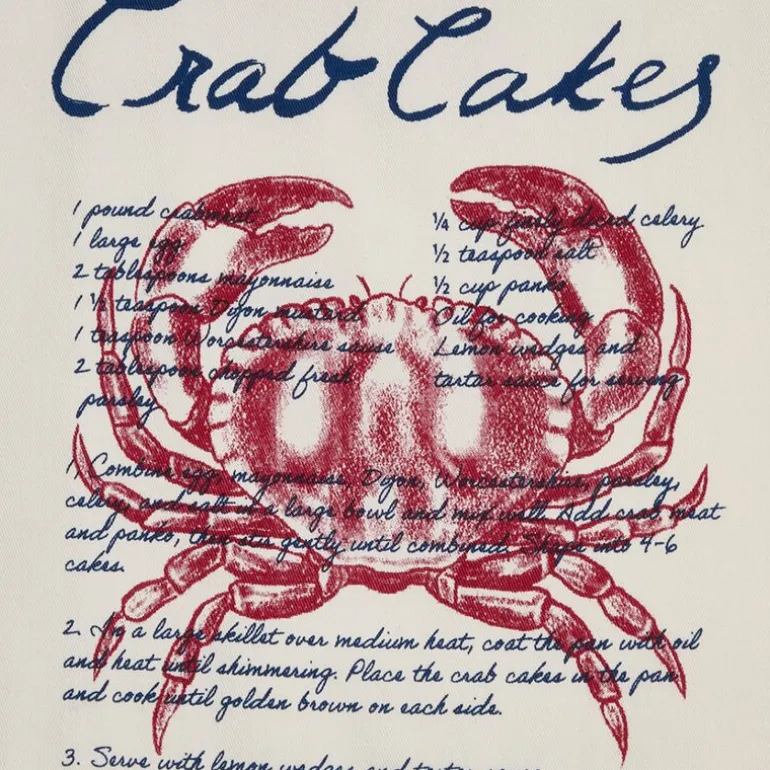 Crab Cakes
1 pound crabmeat
1 large egg
2 tablespoons mayonnaise
1 ½ teaspoon Dijon mustard
1 teaspoon Worcestershire sauce
2 tablespoon chopped fresh
parsley
¼ cup finely diced celery
½ teaspoon salt
½ cup panko
Oil for cooking
Lemon wedges and
tartar sauce for serving
1. Combine egg, mayonnaise, Dijon, Worcestershire, parsley,
celery, and salt in a large bowl and mix well. Add crab meat
and panko, then stir gently until combined. Shape into 4-6
cakes.
2. In a large skillet over medium heat, coat the pan with oil
and heat until shimmering. Place the crab cakes in the pan
and cook until golden brown on each side.
3. Serve with lemon wedges and tartar sauce